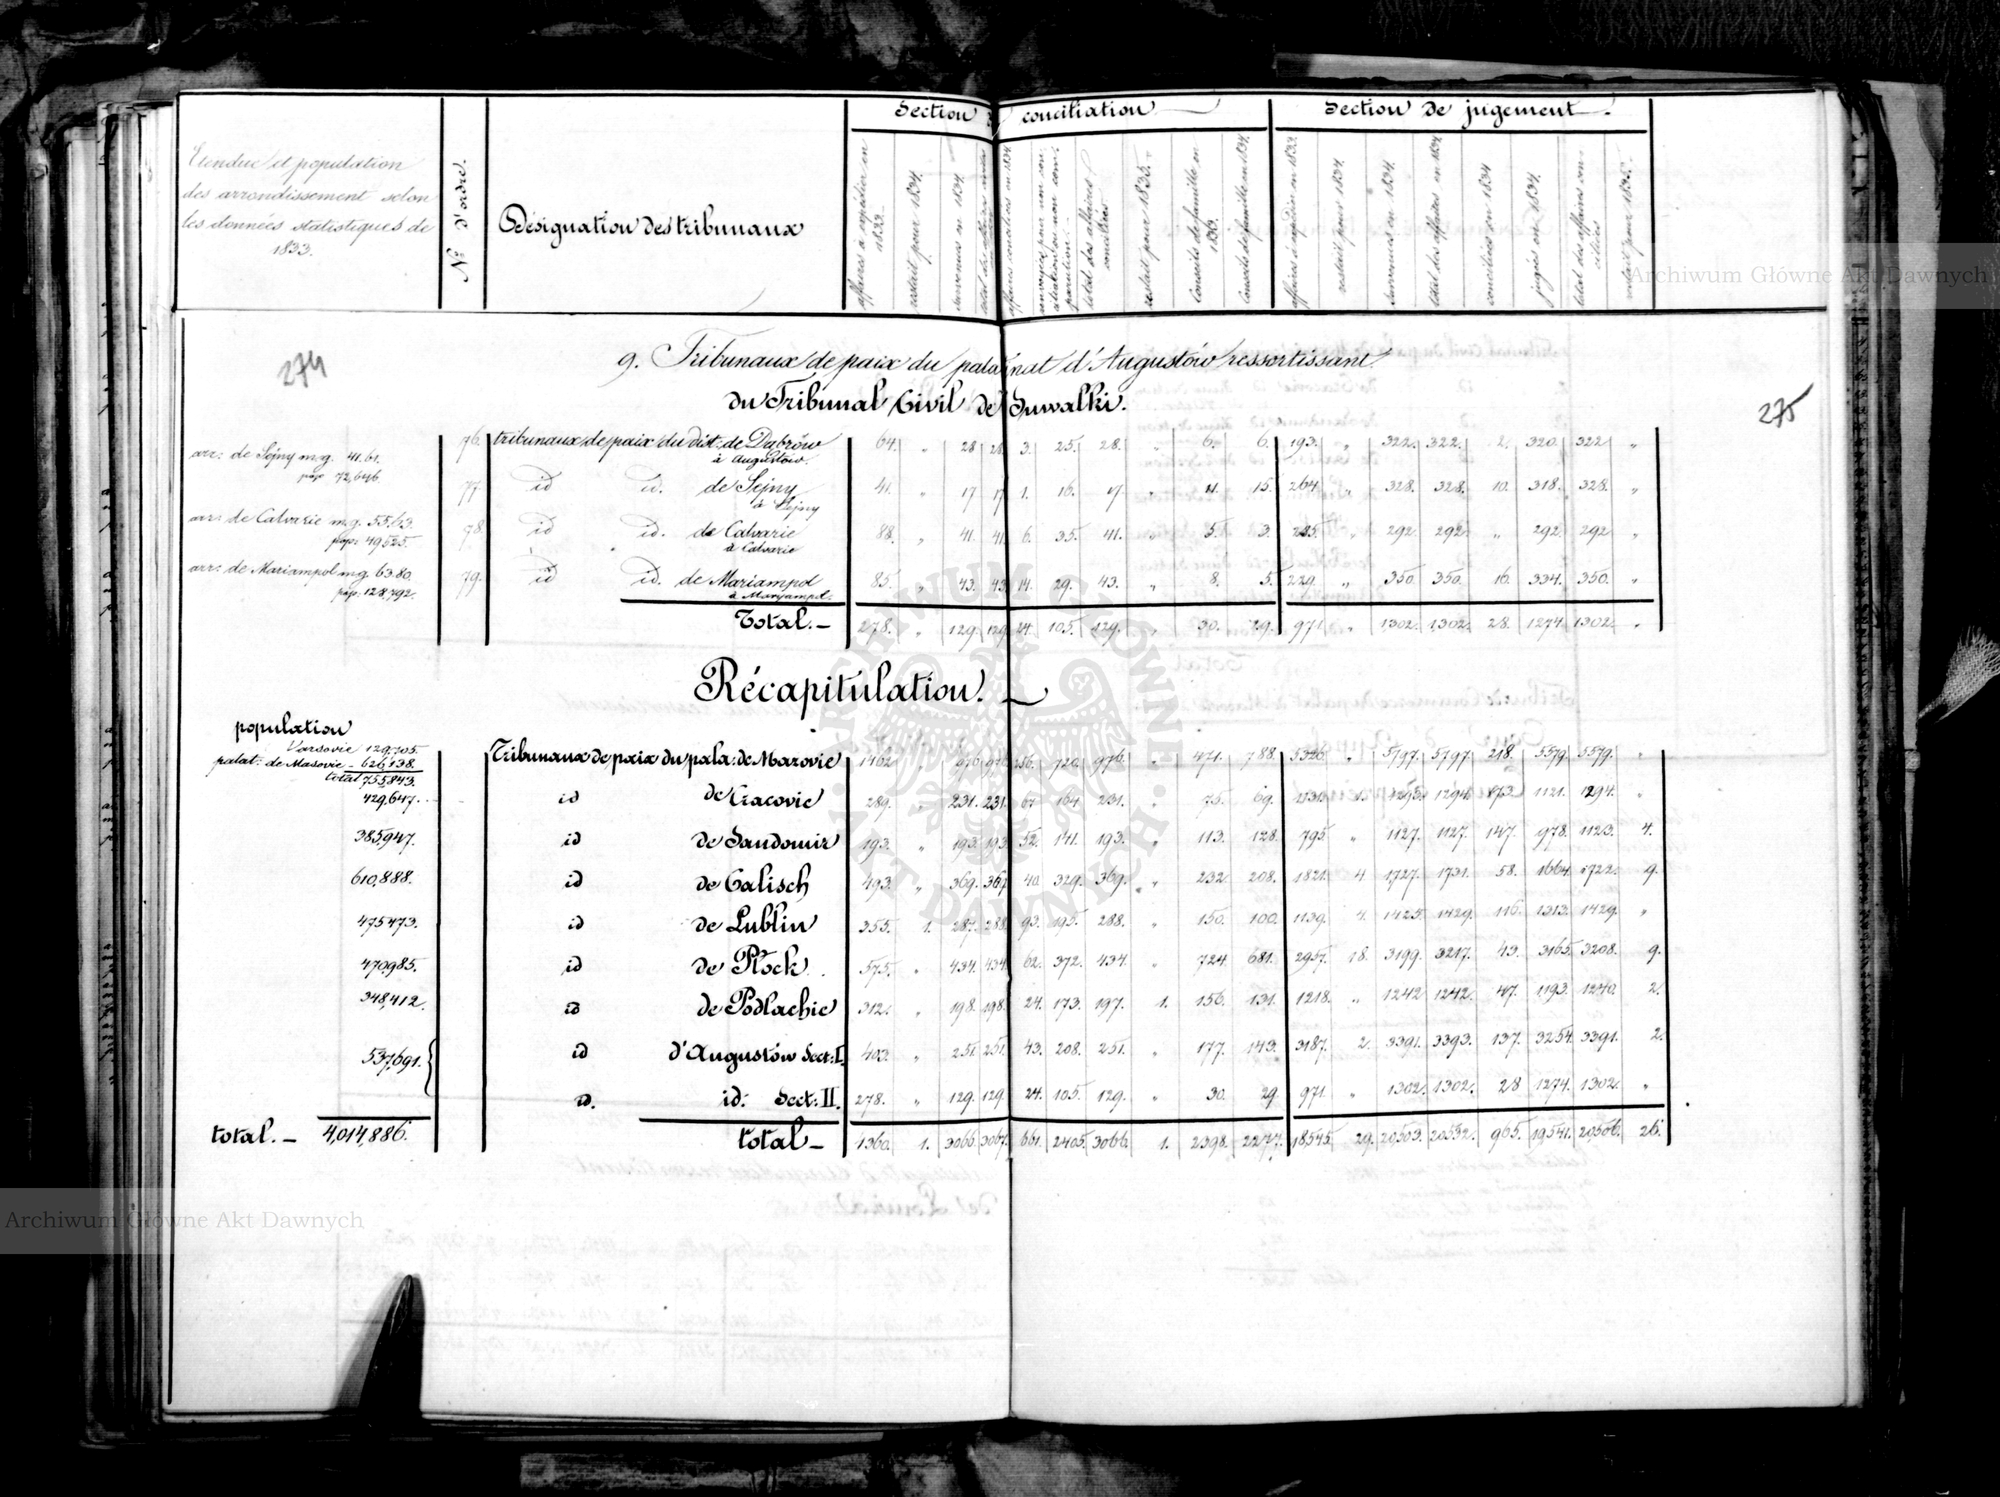 Section de conciliation
Section de jugement.
Etendue et population
des arrondissement selon
les données statistiques de
1833.
No d'ordre.
Désignation des tribunaux
affaires à expédier en 1833.
restait pour 1834.
survenues en 1834.
affaires conciliées en 1834.
total des affaires conciliées
restait pour 1835.
Conseils de famille en
Conseils de famille en 1834.
affaires à expédier en 1833.
restait pour 1834.
survenues en 1834.
total des affaires en 1834
conciliées en 1834
jugées en 1834.
total des affaires conciliées
restait pour 1835.
Archiwum Główne Akt Dawnych
274
275
9. Tribunaux de paix du palatinat d'Augustów ressortissant
du Tribunal Civil de Suwalki.
76. tribunaux de paix du dist: de Dąbrów 64. " 28 28. 3. 25. 28. " 6. 6. 193. " 322. 322. 2. 320. 322 "
à Augustów.
arr: de Sejny m.g. 41.61.
pop: 72,646.
77. id id. de Sejny 41. " 17 17 1. 16. 17. " 11. 15. 264. " 328. 328. 10. 318. 328. "
à Sejny
arr: de Calvarie m.g. 55.63.
pop: 49,525.
78. id id. de Calvarie 88. " 41. 41. 6. 35. 41. " 5. 3. 285. " 292 292. " 292. 292 "
à Calvarie
arr: de Mariampol m.g. 63.80.
pop: 128,792.
79. id id. de Mariampol 85. " 43. 43. 14. 29. 43. " 8. 5. 229. " 350. 350. 16. 334. 350. "
à Maryampol.
Total. 278. " 129. 129 24. 105. 129. " 30. 29. 971 " 1,302. 1,302. 28. 1274. 1302. "
Récapitulation.
population
Varsovie 129,705.
palat: de Masovie - 626,138.
total 755,843.
Tribunaux de paix du pala: de Mazovie 1462. " 976. 976. 256. 720. 976. " 471. 788. 5326. " 5797. 5797. 218. 5579. 5579. "
429,647. id de Cracovie 289. " 231. 231. 67 164 231. " 75. 69. 1131. 1. 1293. 1294. 173. 1121. 1294. "
385,947. id de Sandomir 193. " 193. 193. 52. 141. 193. " 113. 128. 795 " 1127. 1127. 147. 978. 1123. 4.
610,888. id de Calisch 493. " 369. 369. 40. 329. 369. " 232. 208. 1821. 4 1727. 1731. 58. 1664. 1722. 9.
475,473. id de Lublin 355. 1. 287. 288. 93. 195. 288. " 150. 100. 1139. 4. 1425. 1429. 116. 1313. 1429. "
470,985. id de Płock 575. " 434. 434. 62. 372. 434 " 724. 681. 2957. 18. 3199. 3217. 43. 3165. 3208. 9.
348,412. id de Podlachie 312. " 198. 198. 24. 173. 197. 1. 156. 131. 1218. " 1242 1242. 47. 1,193. 1240. 2.
537,691. id d'Augustów Sect: I. 403. " 251. 251. 43. 208. 251. " 177. 143. 3187. 2. 3391. 3393. 137. 3254. 3391. 2.
id. id: Sect: II. 278. " 129. 129. 24. 105. 129. " 30. 29. 971. " 1302. 1302. 28 1274. 1302. "
total. - 4,014,886.
total - 1360. 1. 3066. 3067. 661. 2405. 3066. 1. 2398. 2277. 18,545. 29. 20,503. 20,532. 965. 19,541. 20,506. 26.
Archiwum Główne Akt Dawnych
ARCHIWUM GŁÓWNE AKT DAWNYCH